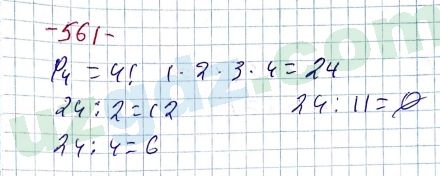 -561-
P₄ = 4! 1·2·3·4=24
24:2=12 24:11=∅
24:4=6
uzgdz.com